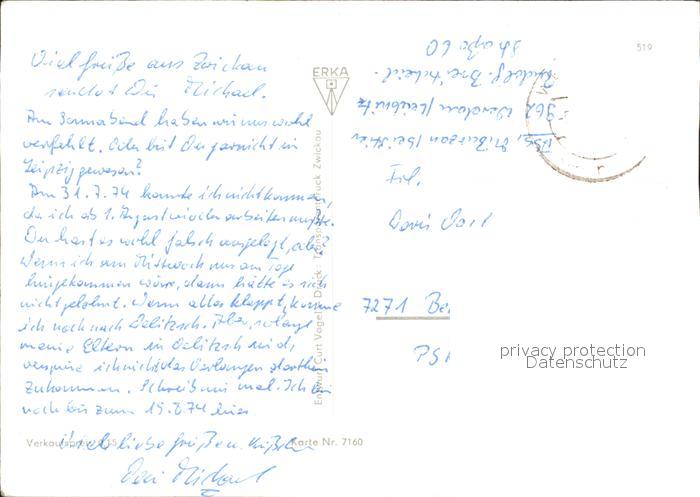 Viel Grüße aus Zwickau
sendet Dir Michael.
Am Sonnabend haben wir uns wohl
verfehlt. Oder bist Du garnicht in
Leipzig gewesen?
Am 31.7.74 konnte ich nicht kommen,
da ich ab 1. August wieder arbeiten mußte.
Du hast es wohl falsch ausgelegt, aber
wenn ich am Mittwoch nur am Tage
hingekommen wäre, dann hätte es sich
nicht gelohnt. Wenn alles klappt, komme
ich noch nach Delitzsch. Aber, solange
meine Eltern in Delitzsch sind,
verspüre ich nicht das Verlangen dorthin
zukommen. Schreib mir mal. Ich bin
noch bis zum 19.8.74 hier
liebe Grüße u. Küßchen
Dein Michael
ERKA
Entwurf Curt Vogel Druck Transparentdruck Zwickau
Verkaufspreis
Karte Nr. 7160
519
962 Werdau/Leubnitz
Rudolf-Breitscheid-
Straße 60
Doris
7271 Be
PS
privacy protection
Datenschutz